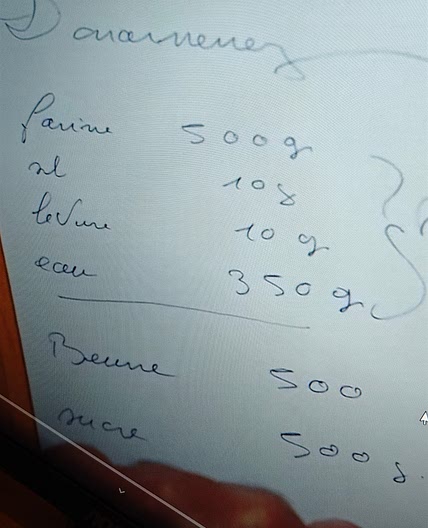 Douarnenez
farine 500g
sel 10g
levure 10 g
eau 350 g
Beurre 500
sucre 500 g.